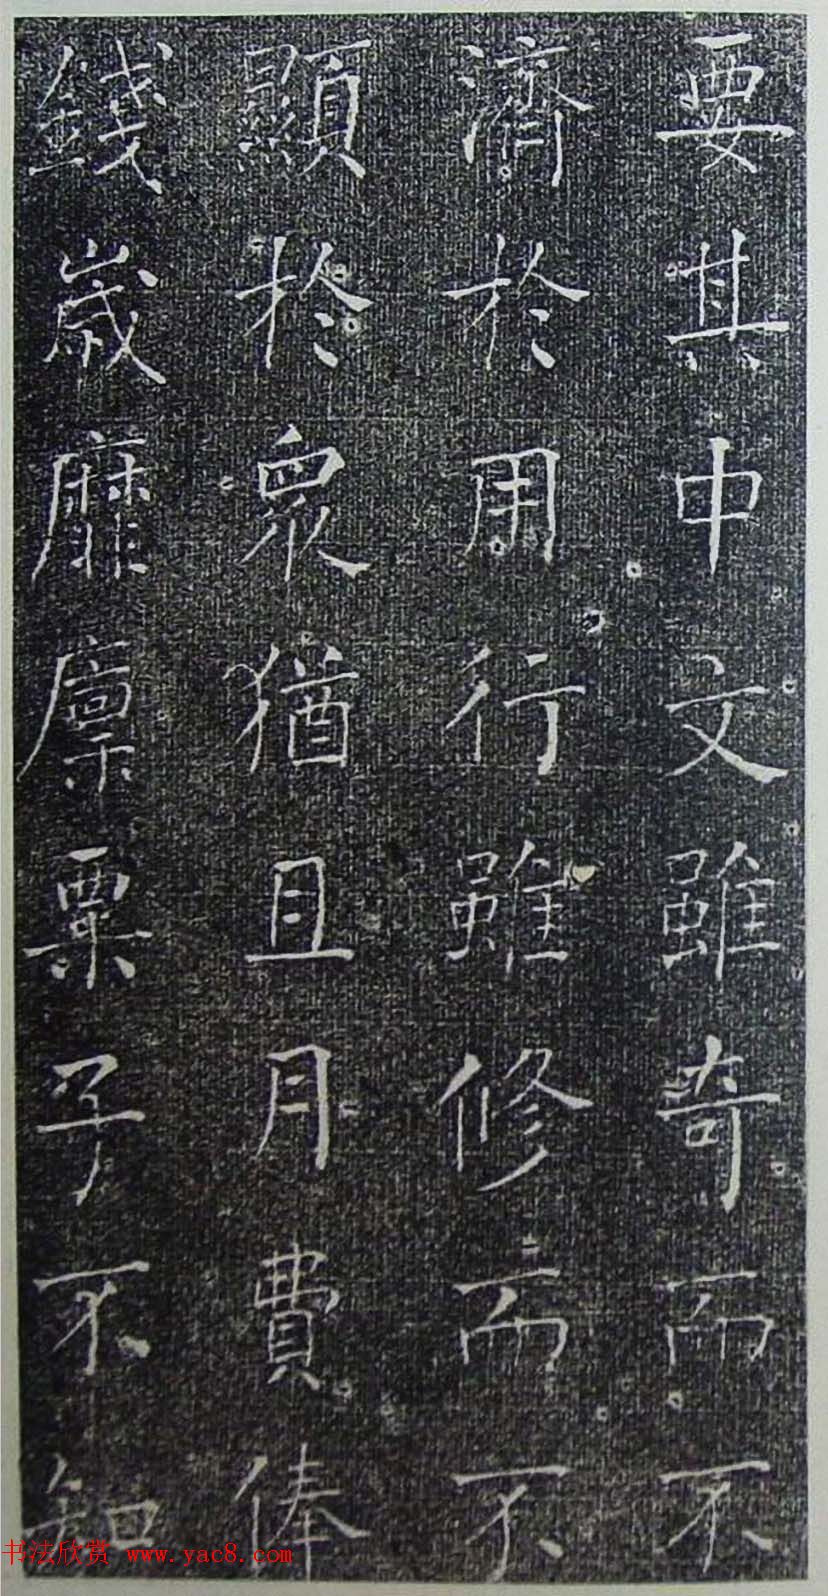 要其中文雖奇而不
濟於用行雖修而不
顯於眾猶且月費俸
錢歲靡廩粟子不知
书法欣赏 www.yac8.com